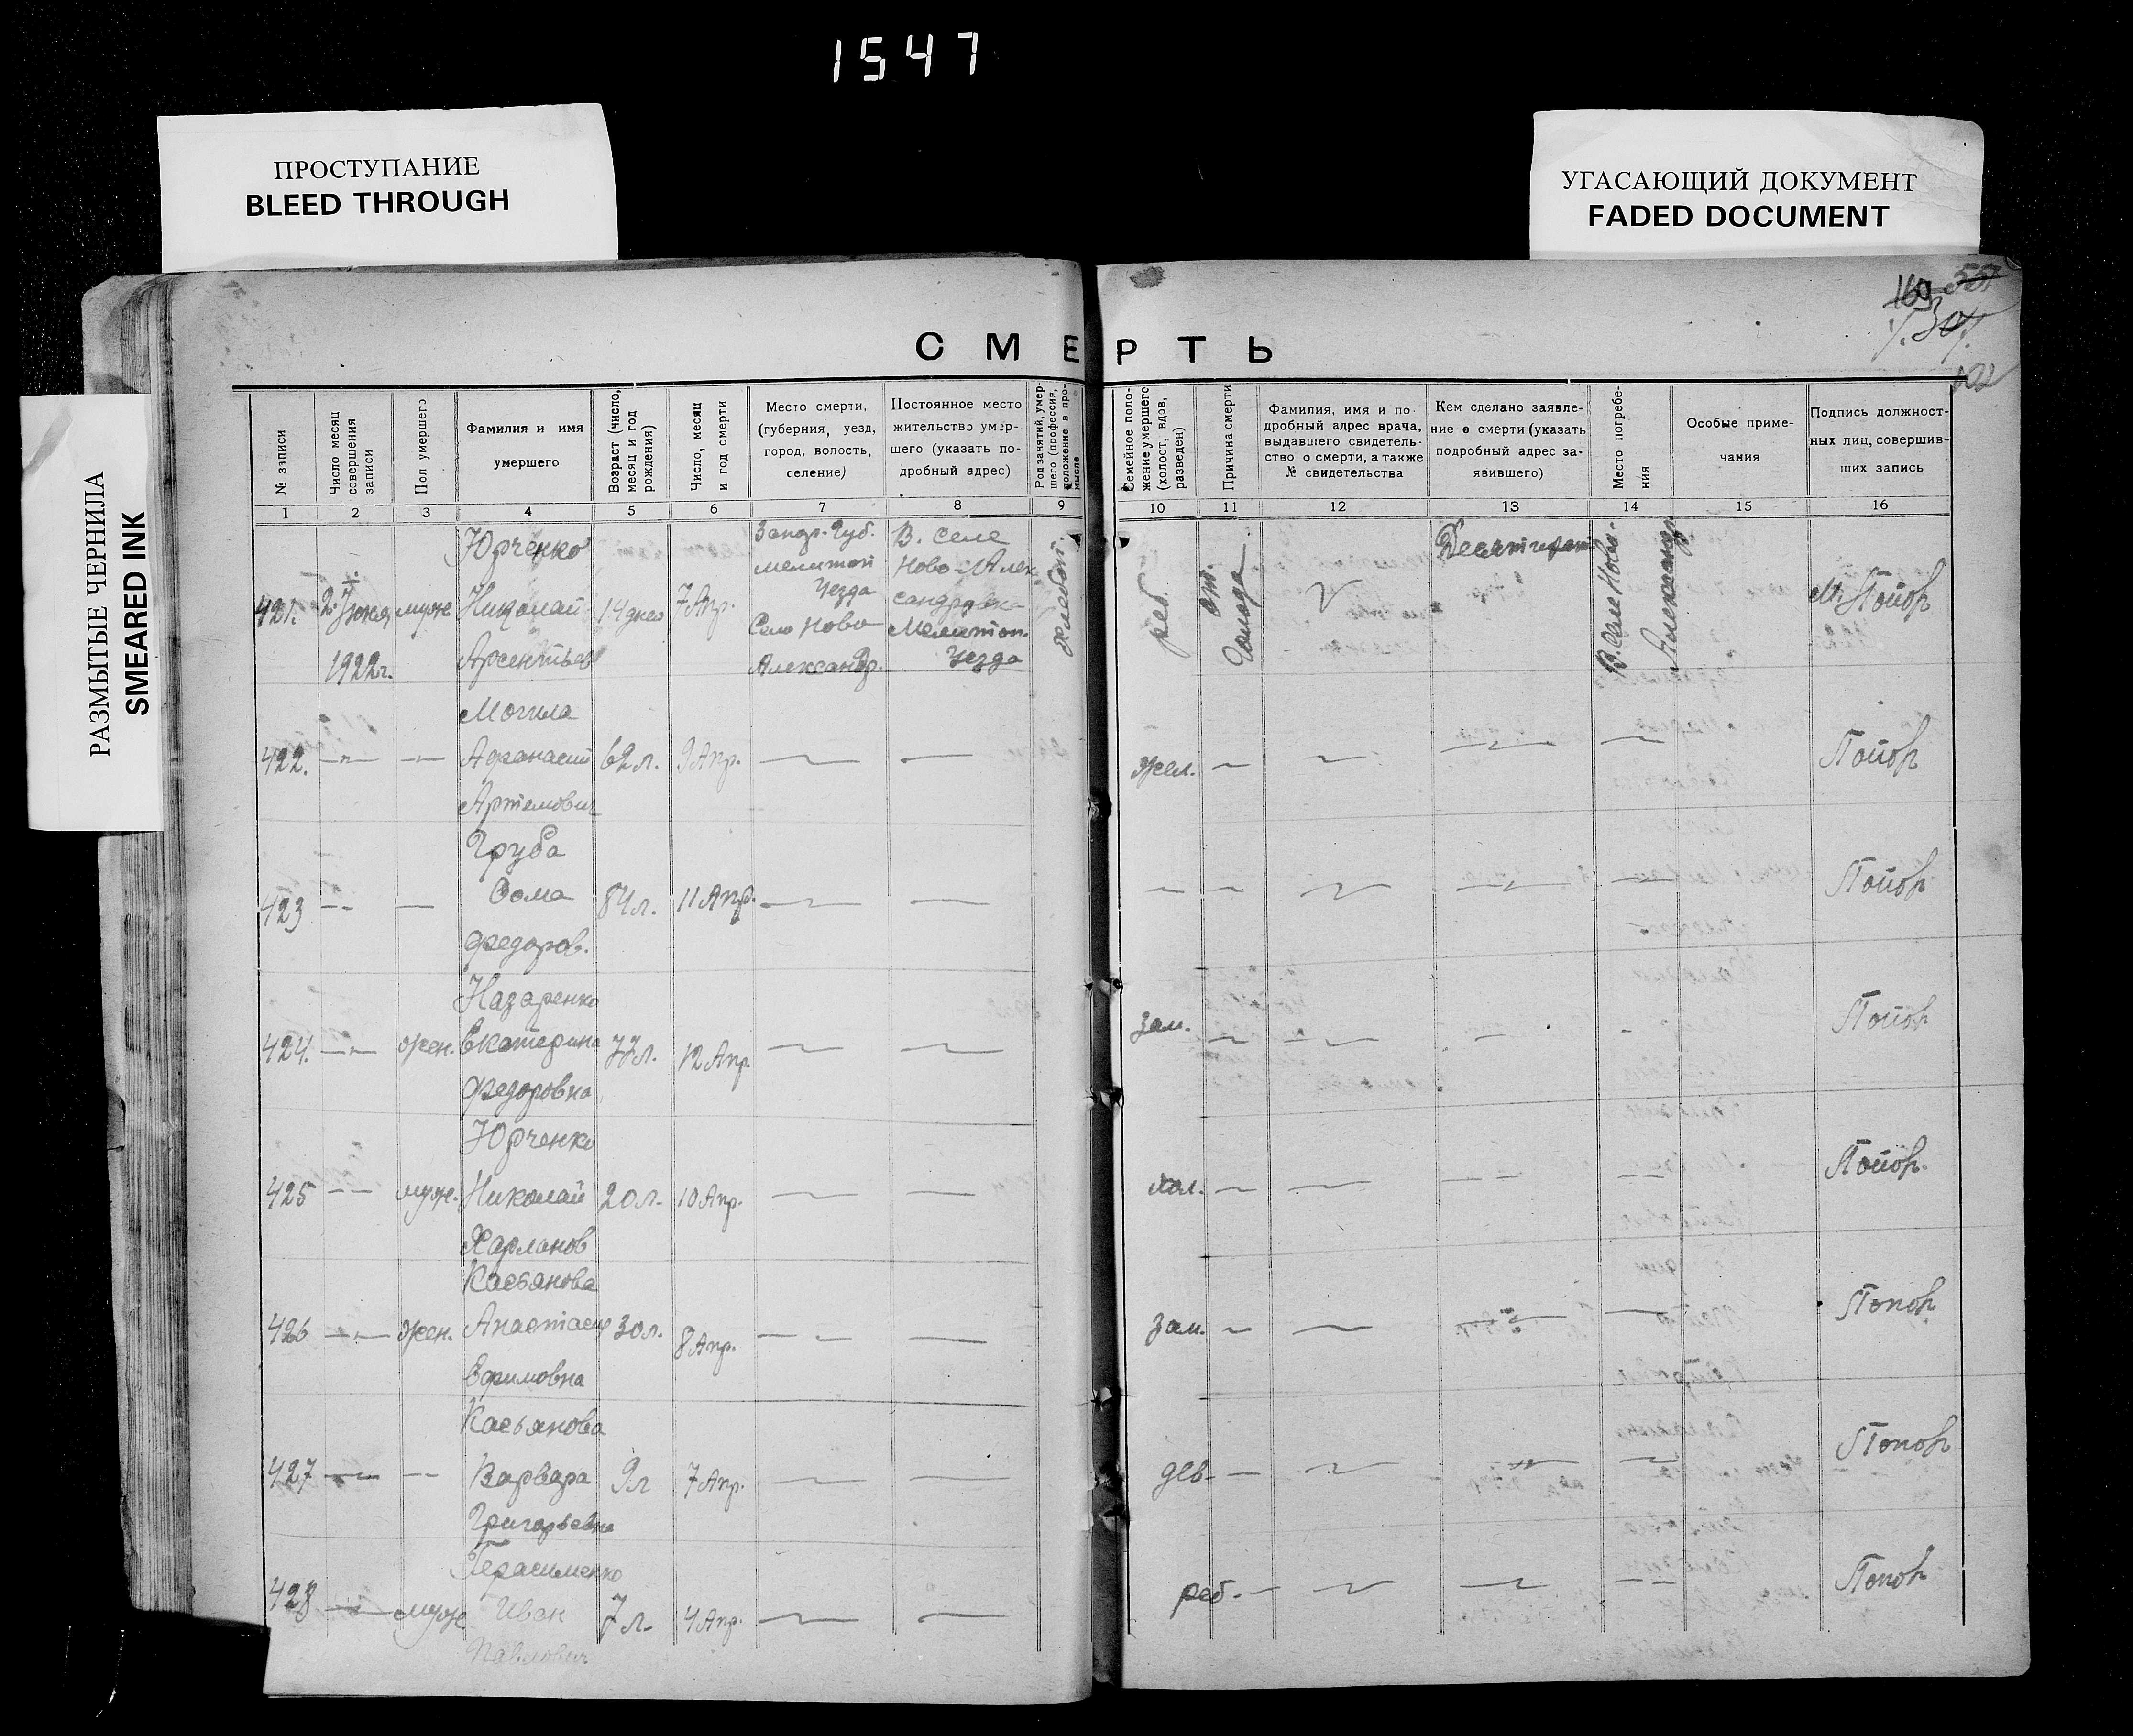 1547
ПРОСТУПАНИЕ
BLEED THROUGH
УГАСАЮЩИЙ ДОКУМЕНТ
FADED DOCUMENT
РАЗМЫТЫЕ ЧЕРНИЛА
SMEARED INK
СМЕРТЬ
№ записи
Число месяц совершения записи
Пол умершего
Фамилия и имя
умершего
Возраст (число, месяц и год рождения)
Число, месяц и год смерти
Место смерти,
(губерния, уезд,
город, волость,
селение)
Постоянное место
жительство умер-
шего (указать по-
дробный адрес)
Род занятий, умер-
шего (профессия,
положение в про-
мысле
Семейное поло-
жение умершего
(холост, вдов,
разведен)
Причина смерти
Фамилия, имя и по
дробный адрес врача,
выдавшего свидетель-
ство о смерти, а также
№ свидетельства
Кем сделано заявле-
ние о смерти (указать
подробный адрес за-
явившего)
Место погребе-
ния
Особые приме-
чания
Подпись должност-
ных лиц, совершив-
ших запись
1 2 3 4 5 6 7 8 9 10 11 12 13 14 15 16
Юрченко
421. 2 Июня муж Николай 14 дней 7 Апр.
1922г. Арсентьев
Запор. Губ.
Мелитоп
Уезда
Село Ново
Александр.
В. селе
Ново-Алек
сандровка
Мелитоп.
Уезда
Хлебоп.
реб.
от.
Голода
В. Селе Ново-
Александр
Могила
422. — — Афанасий 62 л. 9 Апр. — — жен. — — — —
Артемович
Груба
423 — — Фома 84 л. 11 Апр. — — — — — — —
Федоров.
Назаренко
424. — жен. Екатерина 77 л. 12 Апр. — — зам. — — — —
Федоровна
Юрченко
425 — муж. Николай 20 л. 10 Апр. — — хол. — — — —
Харланов
Касьянова
426 — жен. Анастасия 30 л. 8 Апр. — — зам. — — — —
Ефимовна
Касьянова
427 — — Варвара 9 л 7 Апр. — — дев — — — —
Григорьевна
Герасименко
428 — муж Иван 7 л. 4 Апр. — — реб. — — — —
Павлович